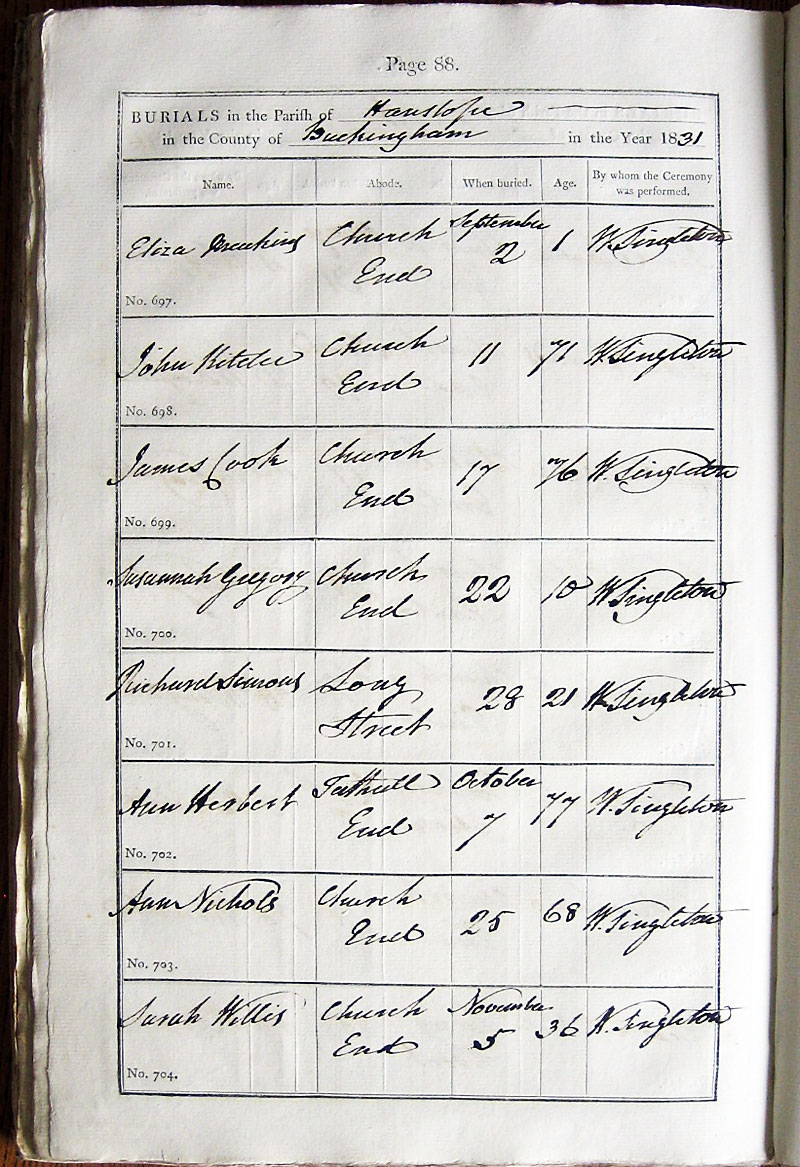 Page 88.
BURIALS in the Parish of Hanslope
in the County of Buckingham in the Year 1831
Name. Abode. When buried. Age. By whom the Ceremony was performed.
Eliza Church September 1 W. Singleton
End 2
No. 697.
John Church 11 71 W. Singleton
End
No. 698.
James Cook Church 17 76 W. Singleton
End
No. 699.
Susannah Gregory Church 22 10 W Singleton
End
No. 700.
Richard Simons Long 28 21 W. Singleton
Street
No. 701.
Ann Herbert Tathall October 77 W. Singleton
End 7
No. 702.
Ann Nichols Church 25 68 W. Singleton
End
No. 703.
Sarah Willis Church November 36 W. Singleton
End 5
No. 704.